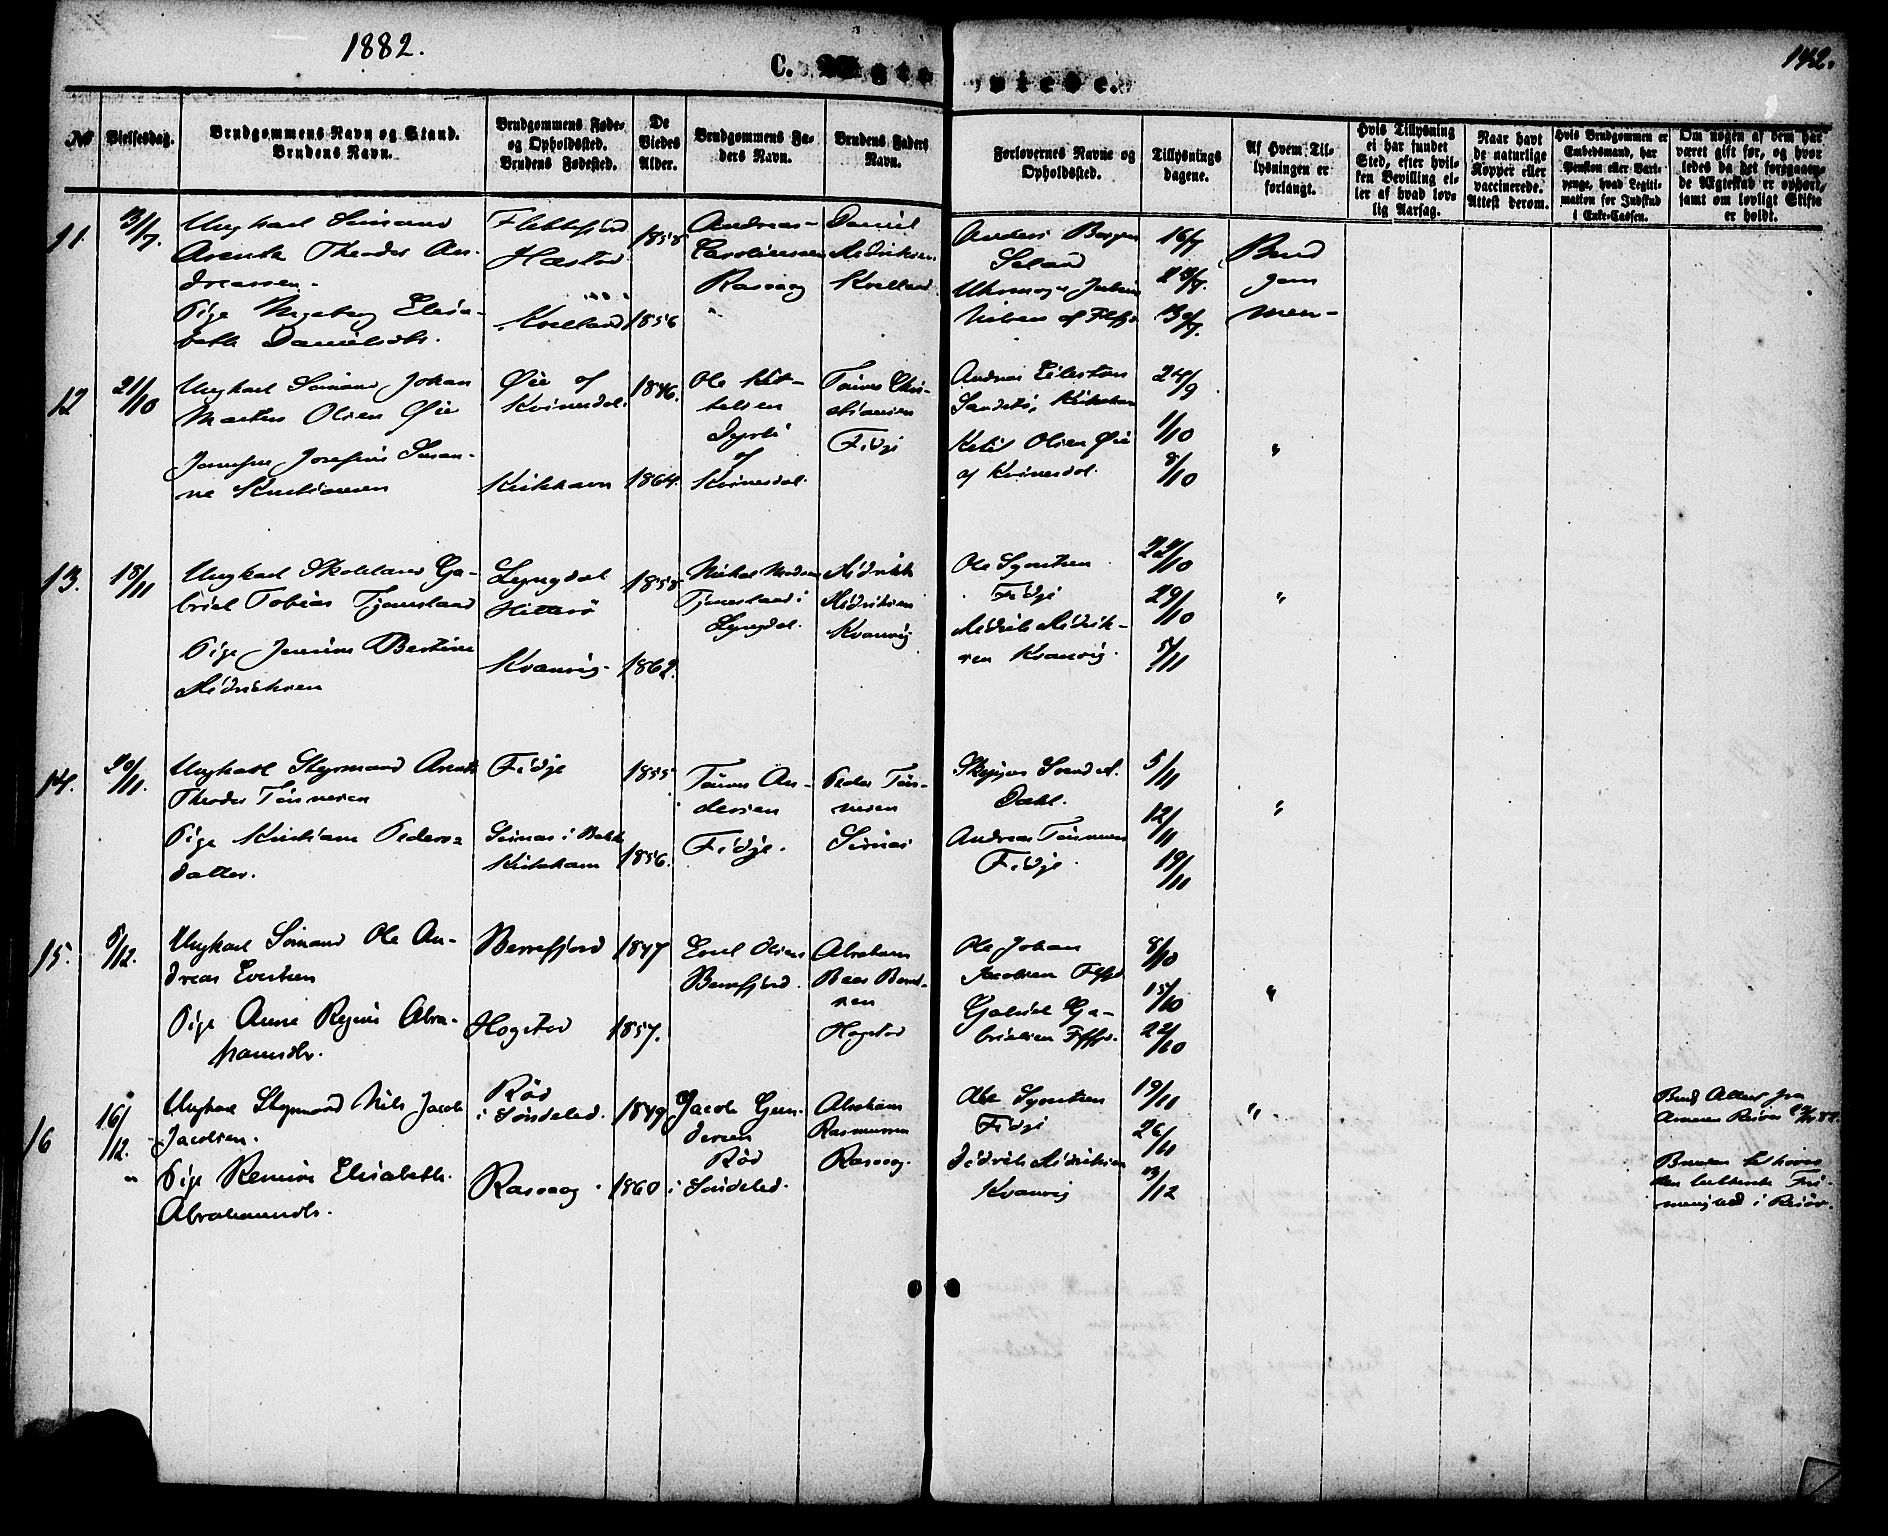 1882.
142.
C. Ægte
viede.
No
Vielsesdag.
Brudgommens Navn og Stand.
Brudens Navn.
Brudgommens Føde-
og Opholdssted.
Brudens Fødested.
De
Viedes
Alder.
Brudgommens Fa-
ders Navn.
Brudens Faders
Navn.
Forlovernes Navne og
Opholdssted.
Tillysnings
dagene.
Af Hvem Til-
lysningen er
forlangt.
Hvis Tillysning
ei har fundet
Sted, efter hvil-
ken Bevilling el-
ler af hvad lov-
lig Aarsag.
Naar havt
de naturlige
Kopper eller
vaccinerede.
Attest derom.
Hvis Brudgommen er
Embedsmand, har
Pension eller Vart-
penge, hvad Legiti-
mation for Indskud
i Enke-Cassen.
Om nogen af dem har
været gift før, og hvor
ledes da det foregaaen-
de Ægteskab er ophørt,
samt om lovligt Skifte
er holdt.
11.
Ungkarl Sømand
Arent Theodor An-
dreassen.
Pige Ingeborg Elisa-
beth Danielsdtr.
Flekkefjord
Hæstad
Kvelland
1858
1856
Andreas
Rasvaag
Daniel
Didriksen
Kvelland
Anders
16/7
23/7.
30/7
Brud
gom
men-
12
21/10
Ungkarl Sømand Johan
Martin Olsen Øie
Josefine Susan-
ne Kristiansen
Øie af
Kvinesdal.
Kirkehavn
1846.
1864.
Ole Ket-
telsen
af
Kvinesdal.
Tønnes Chri-
stiansen
Fidje
Andreas Eilertsen
Ketil Olsen Øie
af Kvinesdal.
24/9
1/10
8/10
"
13.
18/11
Ungkarl Ga-
briel Tobias Tjomsland
Pige Bertine
Didriksen
Lyngdal
Hitterø
Kvanvig.
1858
1862.
Tjomsland i
Lyngdal.
Didrik
Didriksen
Kvanvig
Ole Syvertsen
Fidje
Didrik Didrik-
sen Kvanvig.
22/10
29/10
5/11
"
14.
20/11.
Ungkarl Styrmand Arent
Theodor Tønnesen
Pige Kristiane Peders-
datter.
Fidje
Sirnæs i Bakke
Kirkehavn
1855
1856.
Tønnes An-
dersen
Fidje.
Peder Tøn-
nesen
Sirnæs
Skipper Svend A.
Dahl.
Andreas Tønnesen
Fidje
5/11
12/11
19/11
"
15.
5/12.
Ungkarl Sømand Ole An-
dreas Evertsen
Pige Anne Regine Abra-
hamsdtr.
Berrefjord
Hogstad
1847
1857.
Evert Olsen
Berrefjord.
Abraham
Hogstad
Ole Johan
Jacobsen
Gabriel Ga-
brielsen
8/10
15/10
22/10
"
16
16/12.
"
Ungkarl Styrmand Nils Jacob
Jacobsen.
Pige Elisabeth
Abrahamsdtr.
Rød
i Søndeled.
Rasvaag.
1849
1860
Jacob Gun-
dersen
Rød
i Søndeled.
Abraham
Rasmussen
Rasvaag.
Ole Syvertsen
Fidje
Didrik Didriksen
Kvanvig
19/11
26/11
3/12
"
Brudg. Attest fra
Bruden
i Risør.